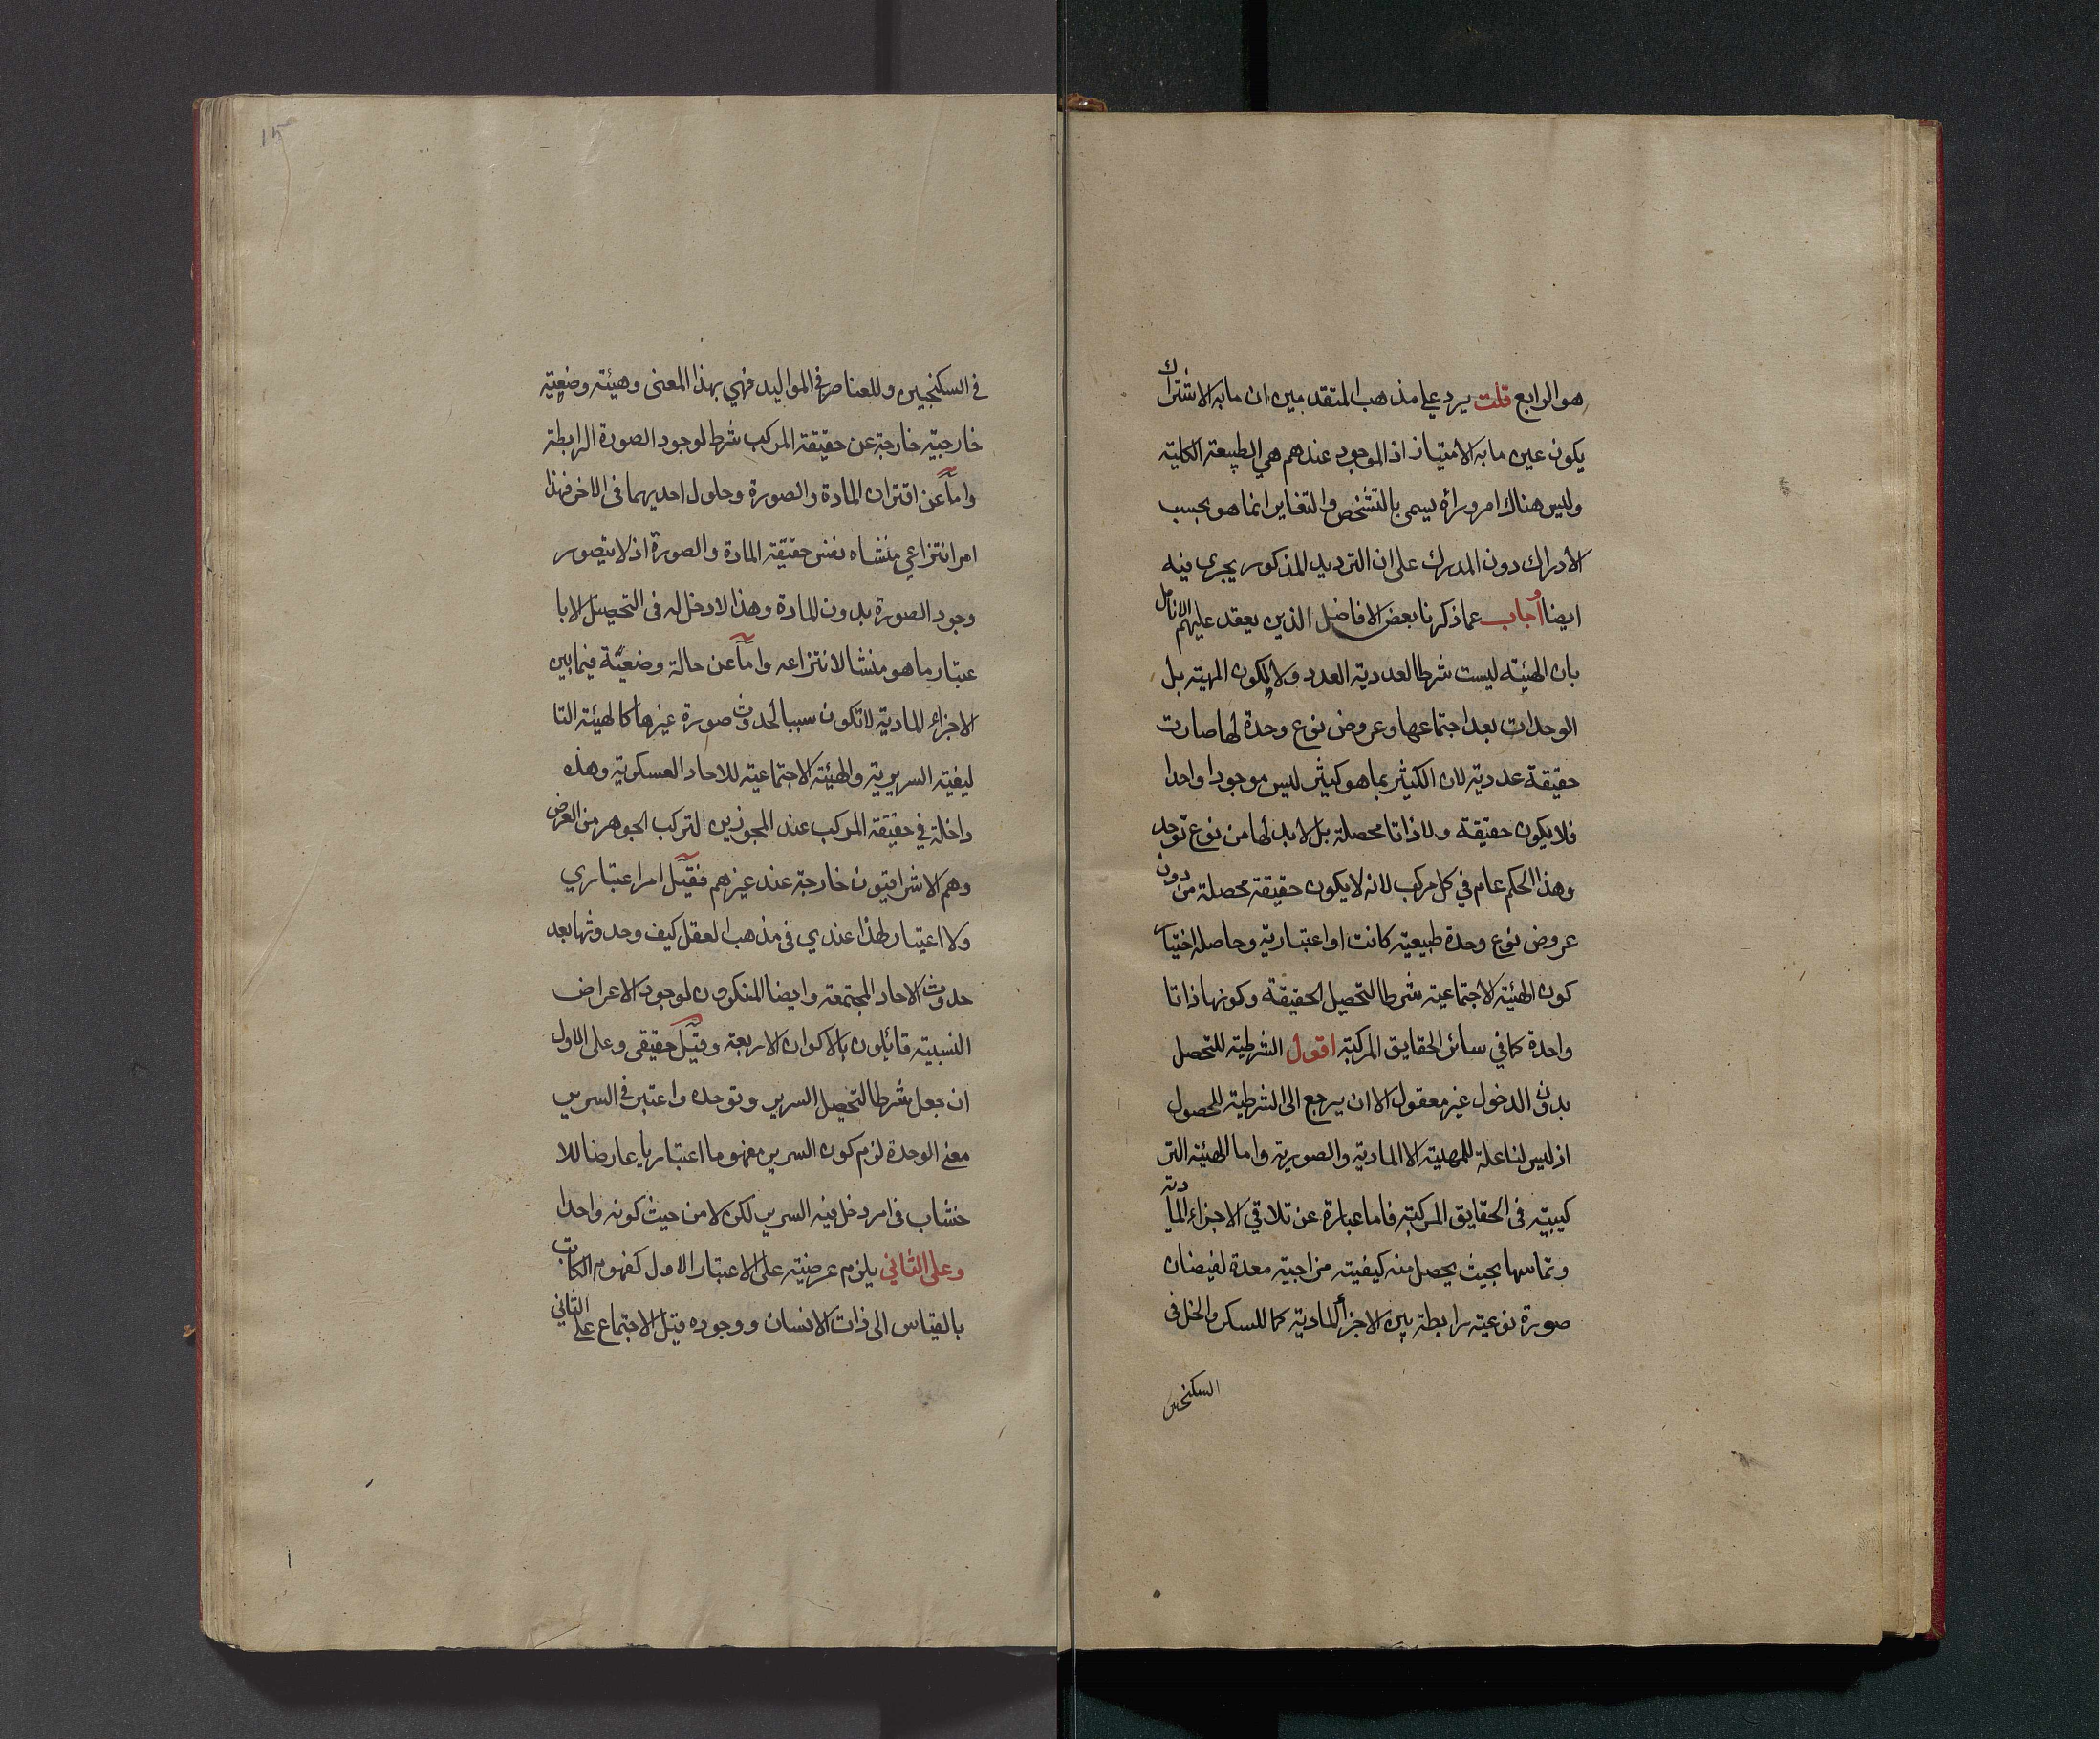 هو الرابع قلت يرد على مذهب المتقدمين ان ما به الاشتراك
يكون عين ما به الامتياز اذ الموجود عندهم هي الطبيعة الكلية
وليس هناك امر وراه يسمى بالتشخص والتغاير انما هو بحسب
الادراك دون المدرك على ان الترديد المذكور يجرى فيه
ايضا واجاب عما ذكرنا بعض الافاضل الذين يعقد عليهم الانامل
بان الهيئة ليست شرطا لعددية العدد ولا لكون المهية بل
الوحدات بعد اجتماعها وعروض نوع وحدة لها صارت
حقيقة عددية لان الكثير بما هو كثير ليس موجودا واحدا
فلا يكون حقيقة ولا ذاتا محصلة بل لا بد لها من نوع توحد
وهذا الحكم عام في كل مركب لانه لا يكون حقيقة محصلة من دون
عروض نوع وحدة طبيعية كانت او اعتبارية وحاصله اختيار
كون الهيئة الاجتماعية شرطا لتحصيل الحقيقة وكونها ذاتا
واحدة كما في سائر الحقايق المركبة اقول الشرطية للتحصل
بدون الدخول غير معقول الا ان يرجع الى الشرطية للحصول
اذ ليس لنا علة للمهية الا المادية والصورية واما الهيئة التر
كيبية فى الحقايق المركبة فاما عبارة عن تلاقي الاجزاء المادية
وتماسها بحيث يحصل منه كيفية مزاجية معدة لفيضان
صورة نوعية رابطة بين الاجزأ المادية كما للسكر والخل فى
السكنجبين
15
في السكنجبين وللعناصر في المواليد فهي بهذا المعنى وهيئة وضعية
خارجية خارجة عن حقيقة المركب شرط لوجود الصورة الرابطة
واما عن اقتران المادة والصورة وحلول احديهما فى الاخر فهذا
امر انتزاعي منشاه نفس حقيقة المادة والصورة اذ لا يتصور
وجود الصورة بدون المادة وهذا لا دخل له فى التحصيل الا با
عتبار ما هو منشا لانتزاعه واما عن حالة وضعية فيما بين
الاجزاء المادية لا تكون سببا لحدوث صورة غيرها كالهيئة التا
ليفية السريرية والهيئة الاجتماعية للاحاد العسكرية وهذه
داخلة في حقيقة المركب عند المجوزين لتركب الجوهر من العرض
وهم الاشراقيون خارجة عند غيرهم فقيل امر اعتباري
ولا اعتبار لهذا عندي فى مذهب العقل كيف وحدوثها بعد
حدوث الاحاد المجتمعة وايضا المنكرون لوجود الاعراض
النسبية قائلون بالاكوان الاربعة وقيل حقيقى وعلى الاول
ان جعل شرطا لتحصل السرير وتوحده واعتبر في السرير
معنى الوحدة لزم كون السرير مفهوما اعتباريا عارضا للا
خشاب فى امر دخل فيه السرير لكن لا من حيث كونه واحدا
وعلى الثاني يلزم عرضيته على الاعتبار الاول كمفهوم الكاتب
بالقياس الى ذات الانسان ووجوده قبل الاجتماع على الثاني